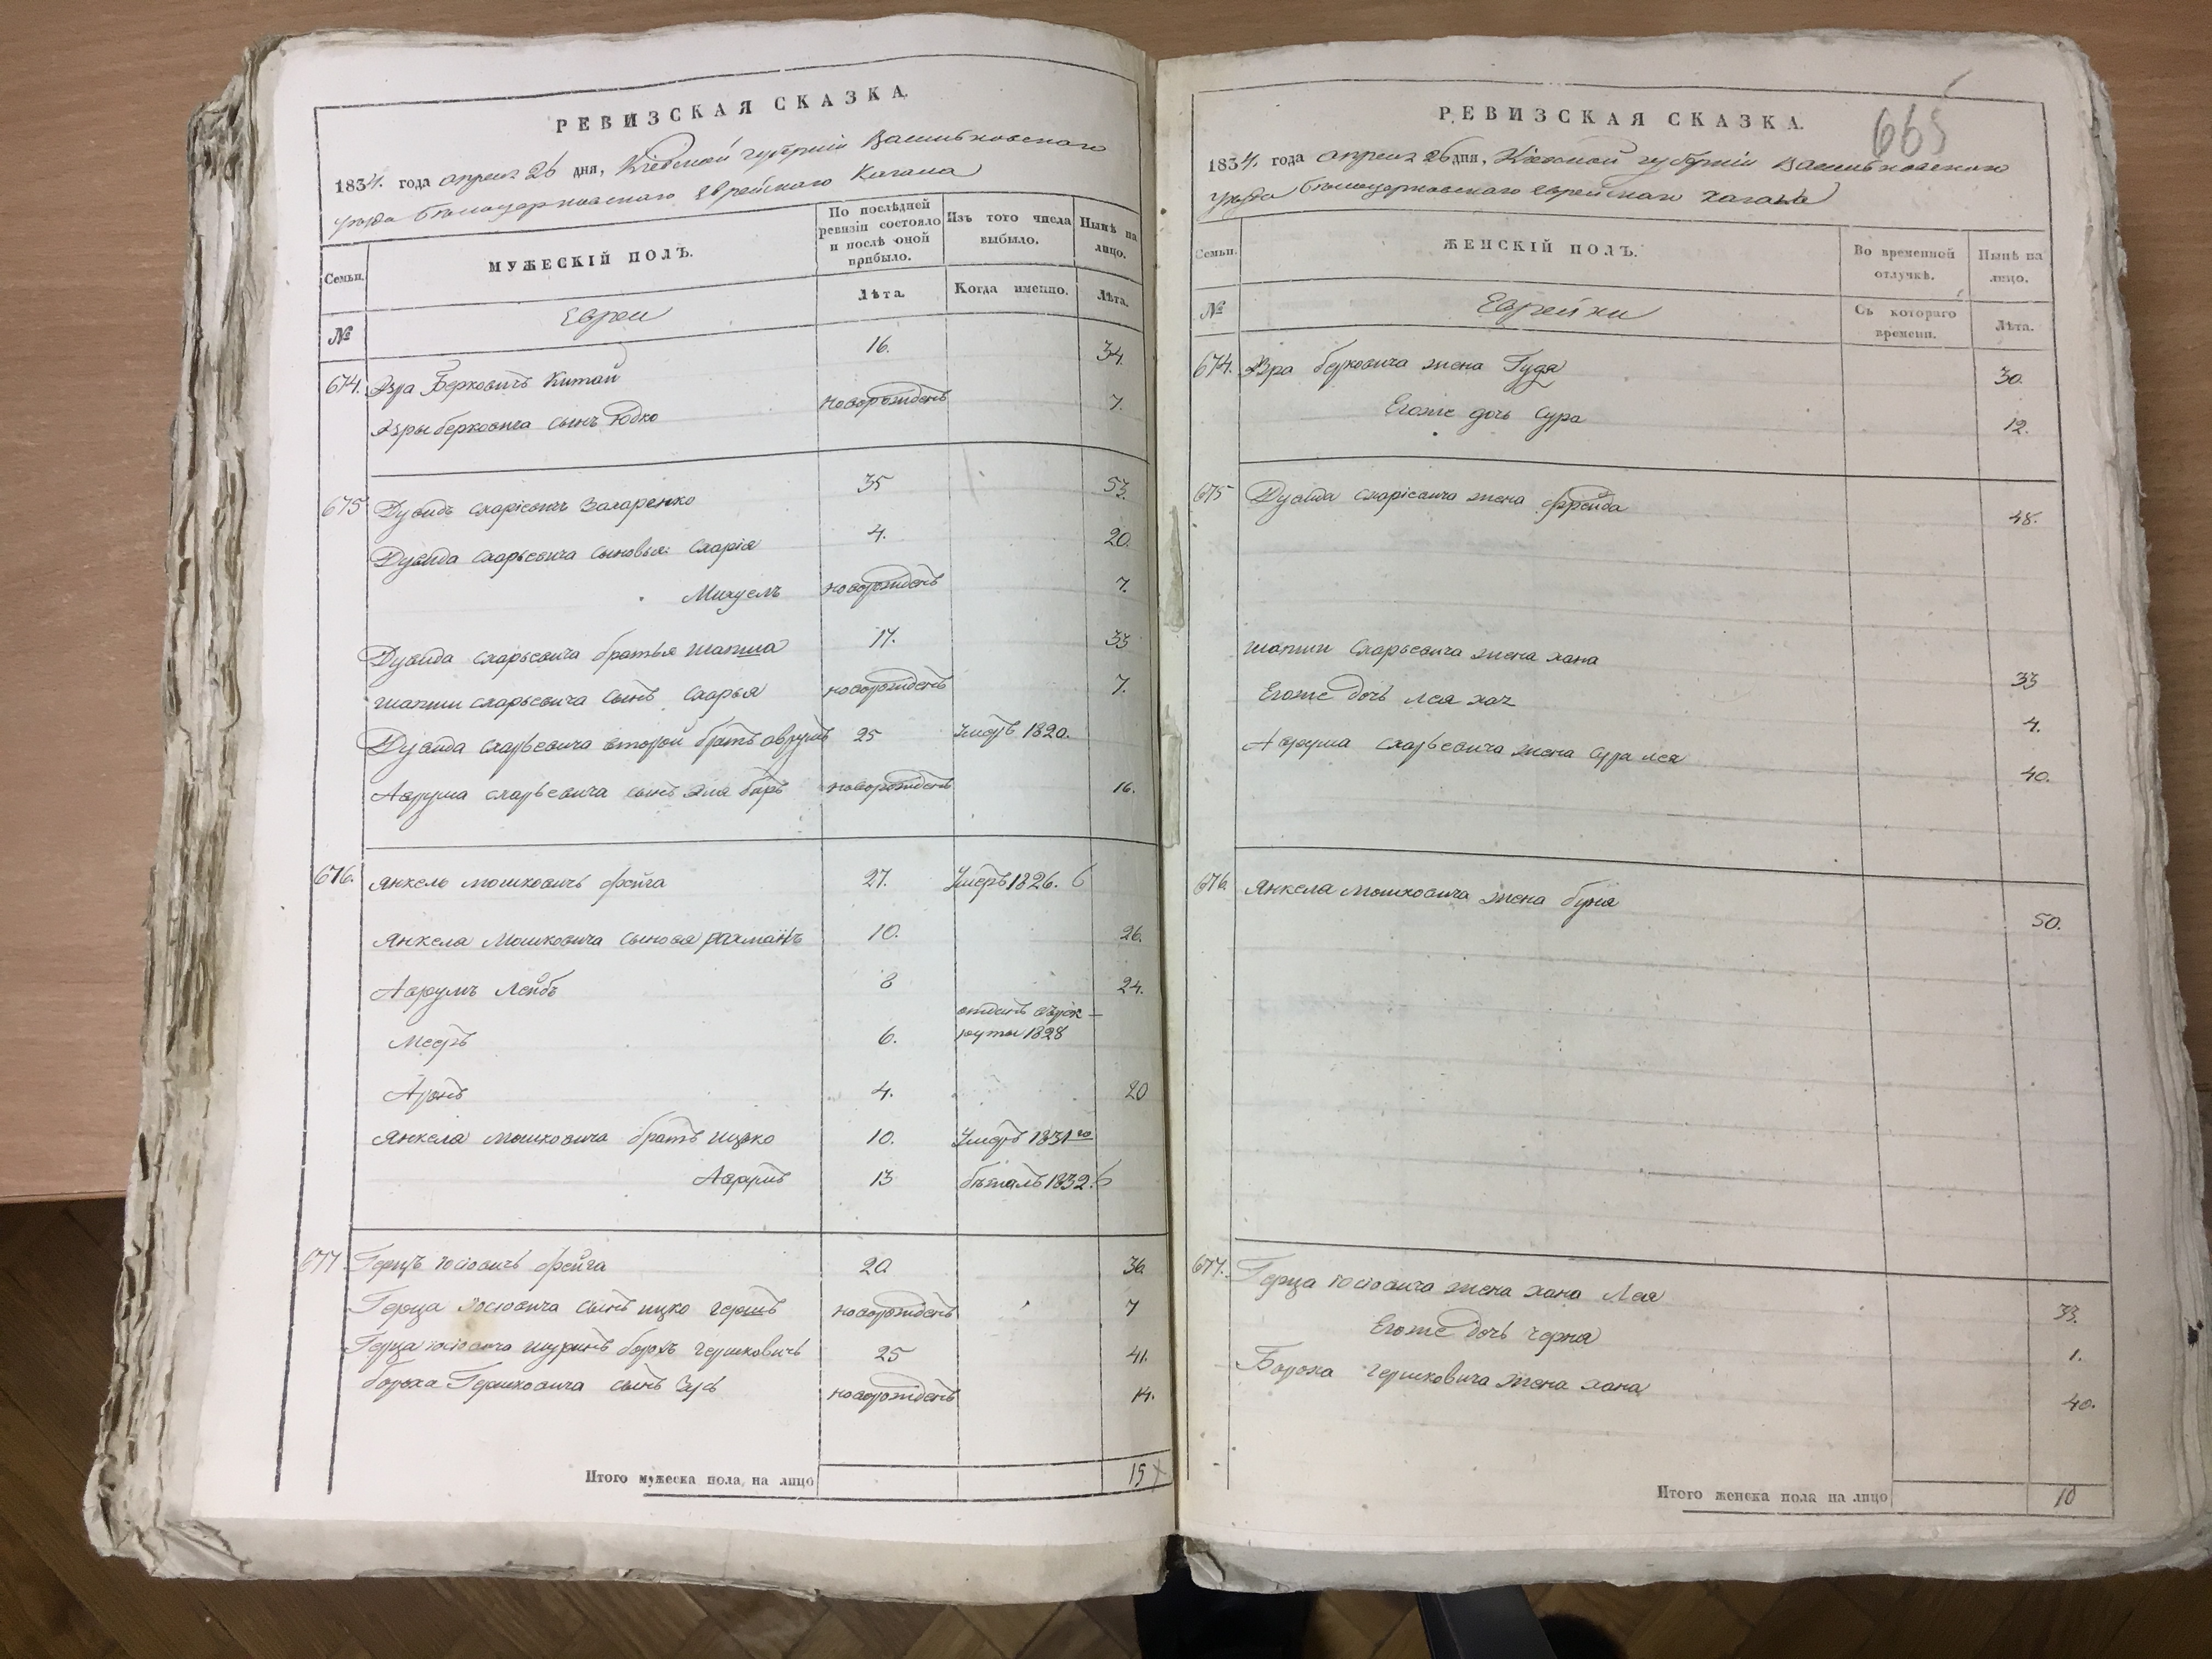 РЕВИЗСКАЯ СКАЗКА
1834. года апреля 26 дня, Кіевской губерніи Васильковского
уезда белоцерковского еврейского Кагала
Семьи.
МУЖЕСКІЙ ПОЛЪ.
По послѣдней ревизіи состояло и послѣ оной прибыло.
Изъ того числа выбыло.
Нынѣ на лицо.
№
Евреи
Лѣта.
Когда именно.
Лѣта.
674. Эзра Берковичъ Китай 16. 34.
Эзры берковича сынъ Юдко новорожденъ 7.
675 Дувидъ схаріевичъ Захаренко 35 53.
Дувида схарьевича сыновья: Схарія 4. 20.
Михуелъ новорожденъ 7.
Дувида схарьевича братья шапша 17. 33
шапши схарьевича сынъ Схарья новорожденъ 7.
Дувида схарьевича второй братъ аврумъ 25 Умеръ 1820.
Аврума схарьевича сынъ Эля беръ новорожденъ 16.
676. Янкель мошковичъ фейга 27. Умеръ 1826.
Янкеля Мошковича сыновя рахманъ 10. 26.
Аврумъ Лейбъ 8 24.
Мееръ 6. отданъ врек-
руты 1828
Аронъ 4. 20
Янкеля Мошковича братъ ицько 10. Умеръ 1831го
Аврумъ 13 бежалъ 1832.
677 Герцъ іосіовичъ фейга 20 36
Герца іосіовича сынъ ицко гершъ новорожденъ 7
Герца іосіовича шуринъ борохъ гершковичъ 25 41.
бороха Гершковича сынъ Зусь новорожденъ 14.
Итого мужеска пола на лицо 15
РЕВИЗСКАЯ СКАЗКА.
665
1834. года апреля 26 дня, Кіевской губерніи Васильковского
уезда белоцерковского еврейского кагала
Семьи.
ЖЕНСКІЙ ПОЛЪ.
Во временной отлучкѣ.
Нынѣ на лицо.
№
Еврейки
Съ котораго времени.
Лѣта.
674. Эзра берковича жена Гудя 30.
Егоже дочь Сура 12.
675 Дувида схаріевича жена фрейда 48.
шапши схарьевича жена хана 33
Егоже дочь лея 4.
Аврума схарьевича жена сура лея 40.
676. Янкеля мошковича жена буня 50.
677. Герца іосіовича жена хана Лея 33.
Егоже дочь черня 1.
Бороха гершковича жена хана 40.
Итого женска пола на лицо 10